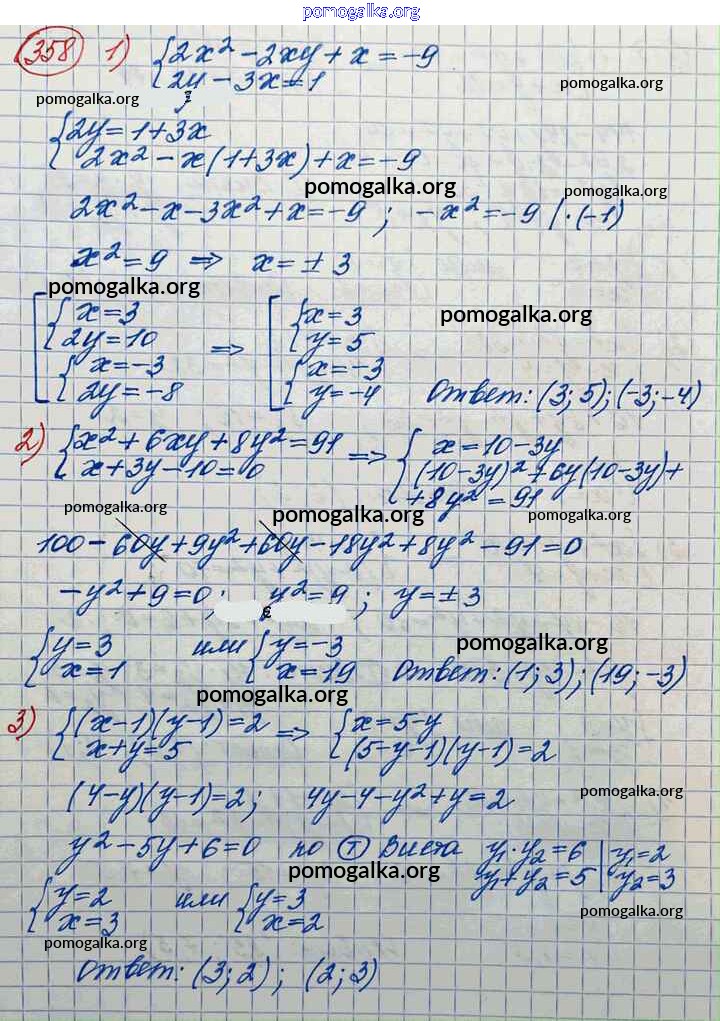 pomogalka.org
358 1) {2x² - 2xy + x = -9
{2y - 3x = 1
pomogalka.org pomogalka.org
{2y = 1 + 3x
{2x² - x(1 + 3x) + x = -9
pomogalka.org pomogalka.org
2x² - x - 3x² + x = -9 ; -x² = -9 | · (-1)
x² = 9 ⇒ x = ± 3
pomogalka.org
[{x = 3 ⇒ [{x = 3
{2y = 10 {y = 5
pomogalka.org
{x = -3 {x = -3
{2y = -8 {y = -4 Ответ: (3; 5); (-3; -4)
2) {x² + 6xy + 8y² = 91 ⇒ {x = 10 - 3y
{x + 3y - 10 = 0 {(10 - 3y)² + 6y(10 - 3y) +
+ 8y² = 91
pomogalka.org pomogalka.org pomogalka.org
100 - 60y + 9y² + 60y - 18y² + 8y² - 91 = 0
-y² + 9 = 0; y² = 9 ; y = ± 3
{y = 3 или {y = -3
pomogalka.org
{x = 1 {x = 19 Ответ: (1; 3); (19; -3)
pomogalka.org
3) {(x - 1)(y - 1) = 2 ⇒ {x = 5 - y
{x + y = 5 {(5 - y - 1)(y - 1) = 2
(4 - y)(y - 1) = 2; 4y - 4 - y² + y = 2
pomogalka.org
y² - 5y + 6 = 0 по Т Виета y₁ · y₂ = 6 | y₁ = 2
y₁ + y₂ = 5 | y₂ = 3
pomogalka.org
{y = 2 или {y = 3
{x = 3 {x = 2
pomogalka.org
pomogalka.org
Ответ: (3; 2) ; (2; 3)